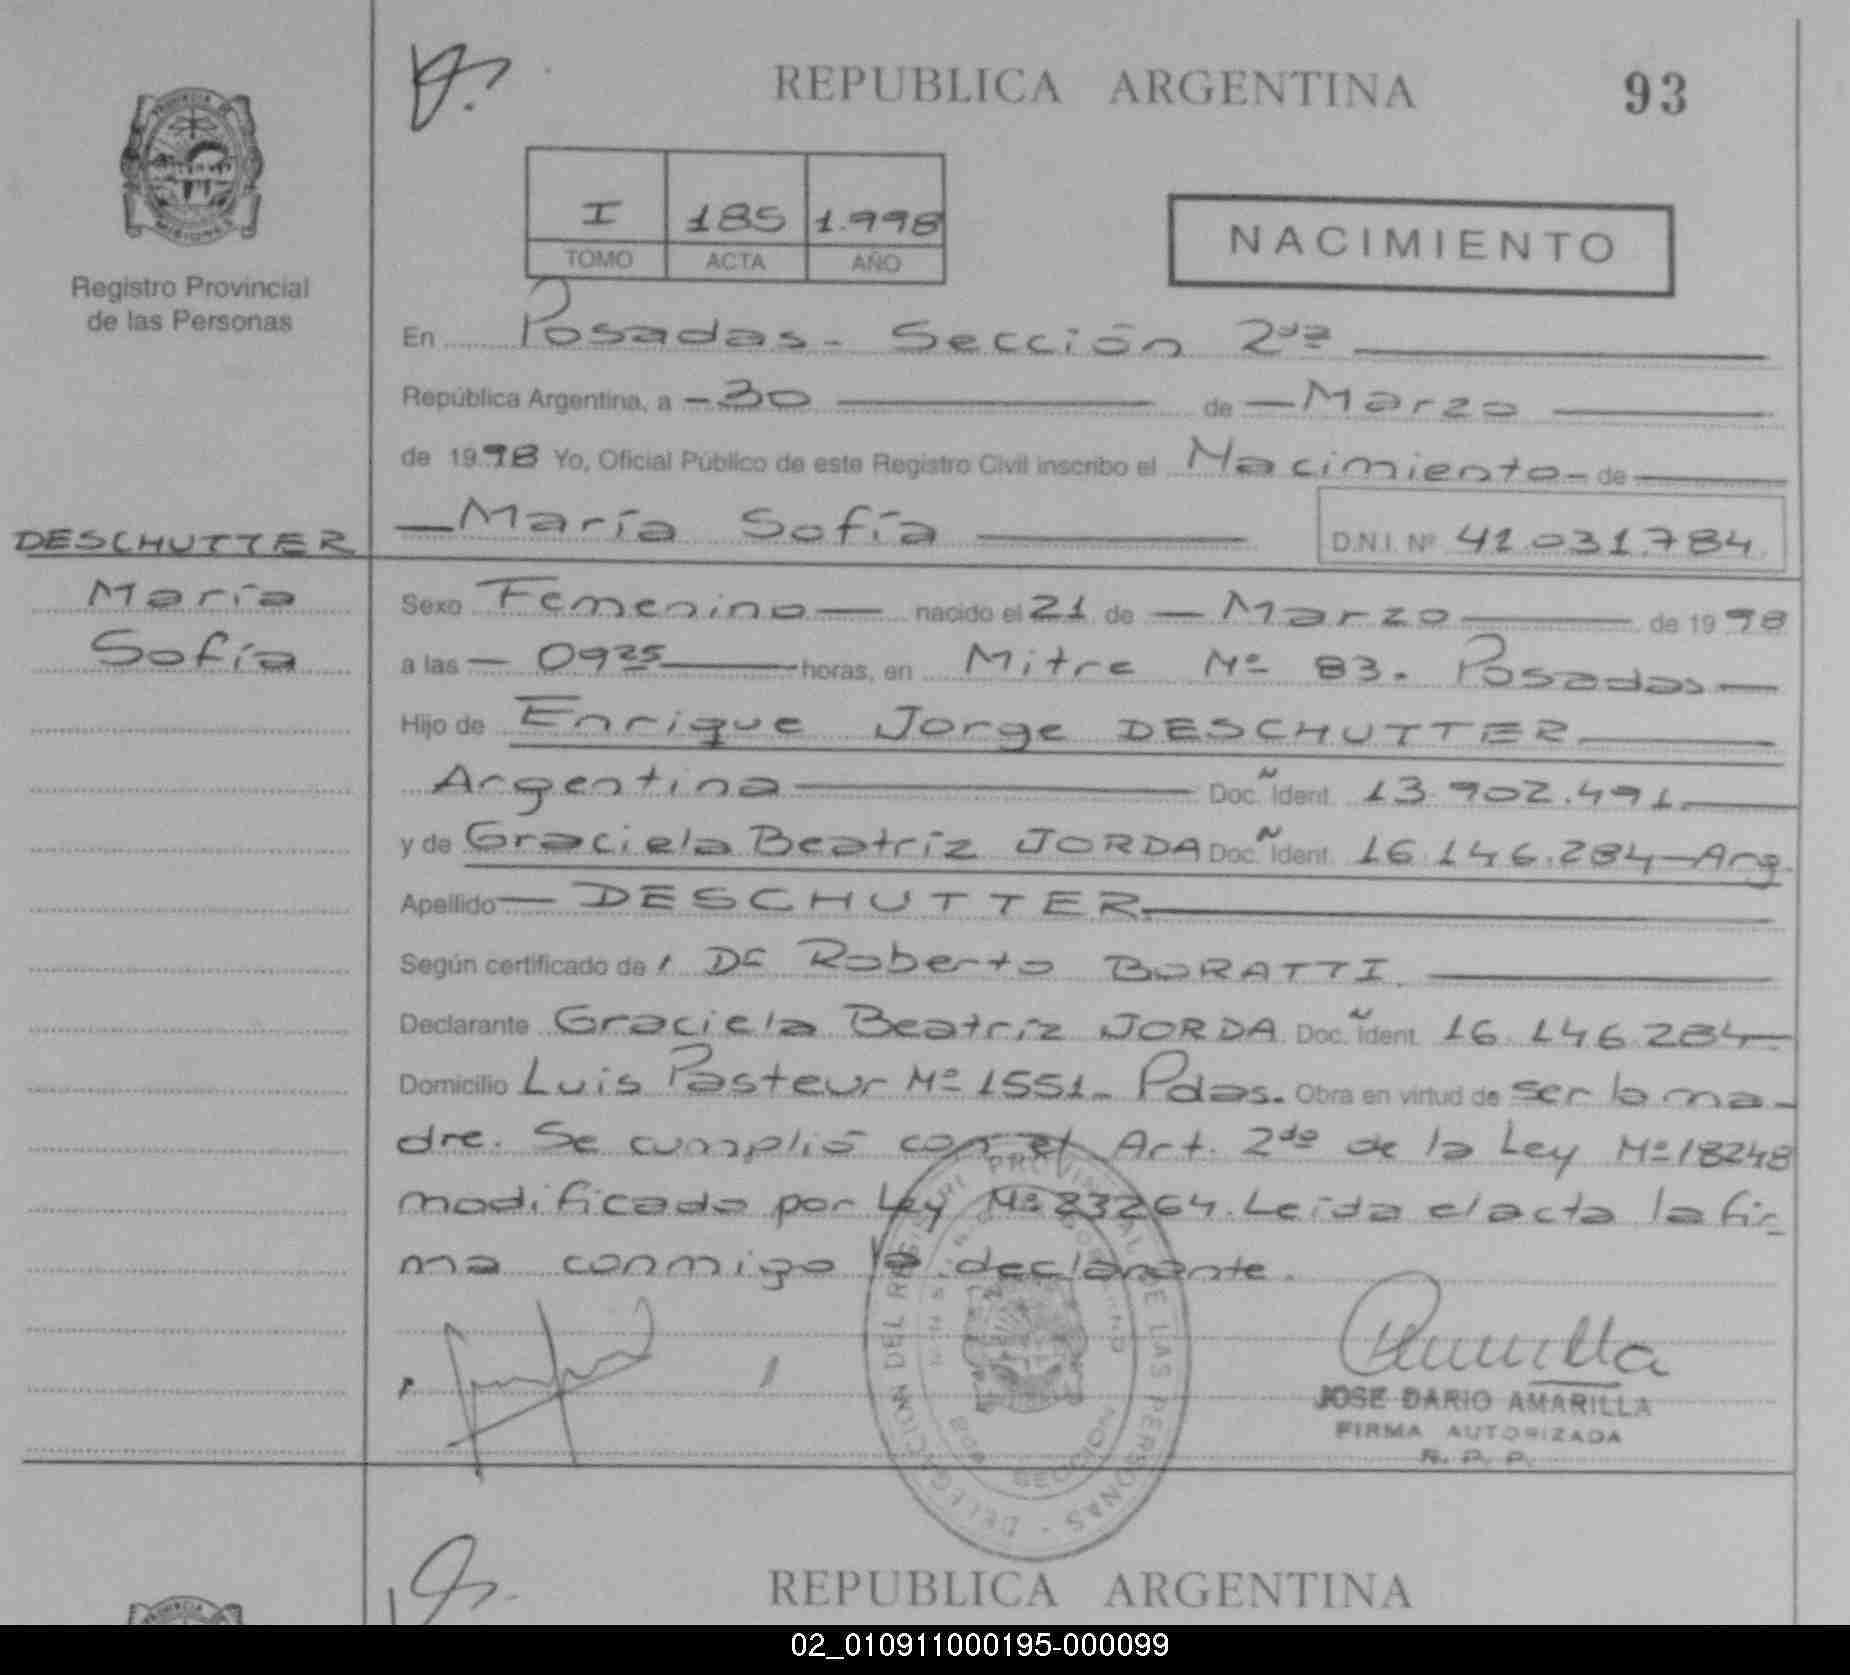 REPUBLICA ARGENTINA
93
PROVINCIA DE
MISIONES
Registro Provincial
de las Personas
I 185 1.998
TOMO ACTA AÑO
NACIMIENTO
En Posadas - Sección 2da
República Argentina, a - 30 de - Marzo
de 1998 Yo, Oficial Público de este Registro Civil inscribo el Nacimiento - de
María Sofía D.N.I. Nº 41.031.784
DESCHUTTER
María
Sofía
Sexo Femenino nacido el 21 de Marzo de 1998
a las 0925 horas, en Mitre Nº 83. Posadas
Hijo de Enrique Jorge DESCHUTTER
Argentina Doc. Ident. 13.902.491
y de Graciela Beatríz JORDA Doc. Ident. 16.146.284 - Arg.
Apellido DESCHUTTER
Según certificado de Dr Roberto BORATTI.
Declarante Graciela Beatríz JORDA Doc. Ident. 16.146.284
Domicilio Luis Pasteur Nº 1551 - Pdas. Obra en virtud de ser la ma-
dre. Se cumplió con el Art. 2do de la Ley Nº 18248
modificado por Ley Nº 23264. Leída el acta la fir-
ma conmigo la declarante.
DELEGACION DEL REGISTRO PROVINCIAL DE LAS PERSONAS
SECCION
JOSE DARIO AMARILLA
FIRMA AUTORIZADA
R. P. P.
REPUBLICA ARGENTINA
PROVINCIA
02_010911000195-000099